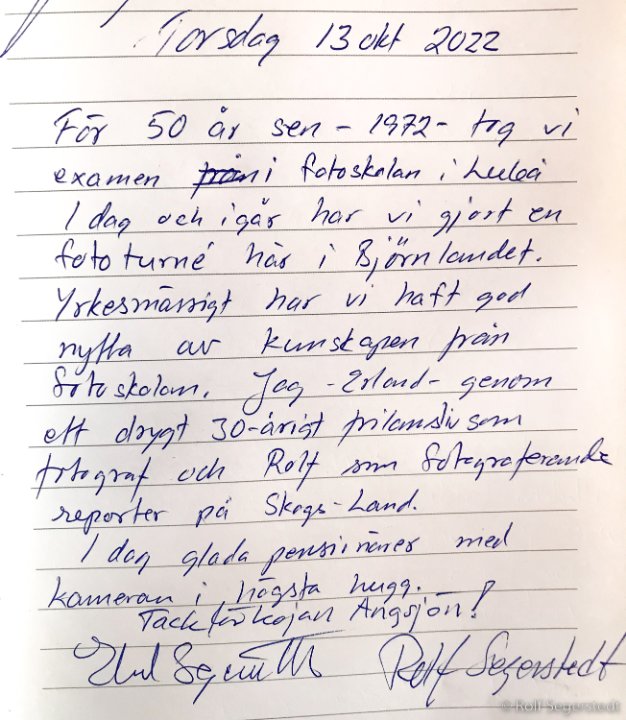 Torsdag 13 okt 2022
För 50 år sen - 1972 - tog vi
examen från i fotoskolan i Luleå
I dag och igår har vi gjort en
fototurné här i Björnlandet.
Yrkesmässigt har vi haft god
nytta av kunskapen från
fotoskolan. Jag - Erland - genom
ett drygt 30-årigt frilansliv som
fotograf och Rolf som fotograferande
reporter på Skogs-Land.
I dag glada pensionärer med
kameran i högsta hugg.
Tack för kojan Angsjön!
Rolf Segerstedt
© Rolf Segerstedt